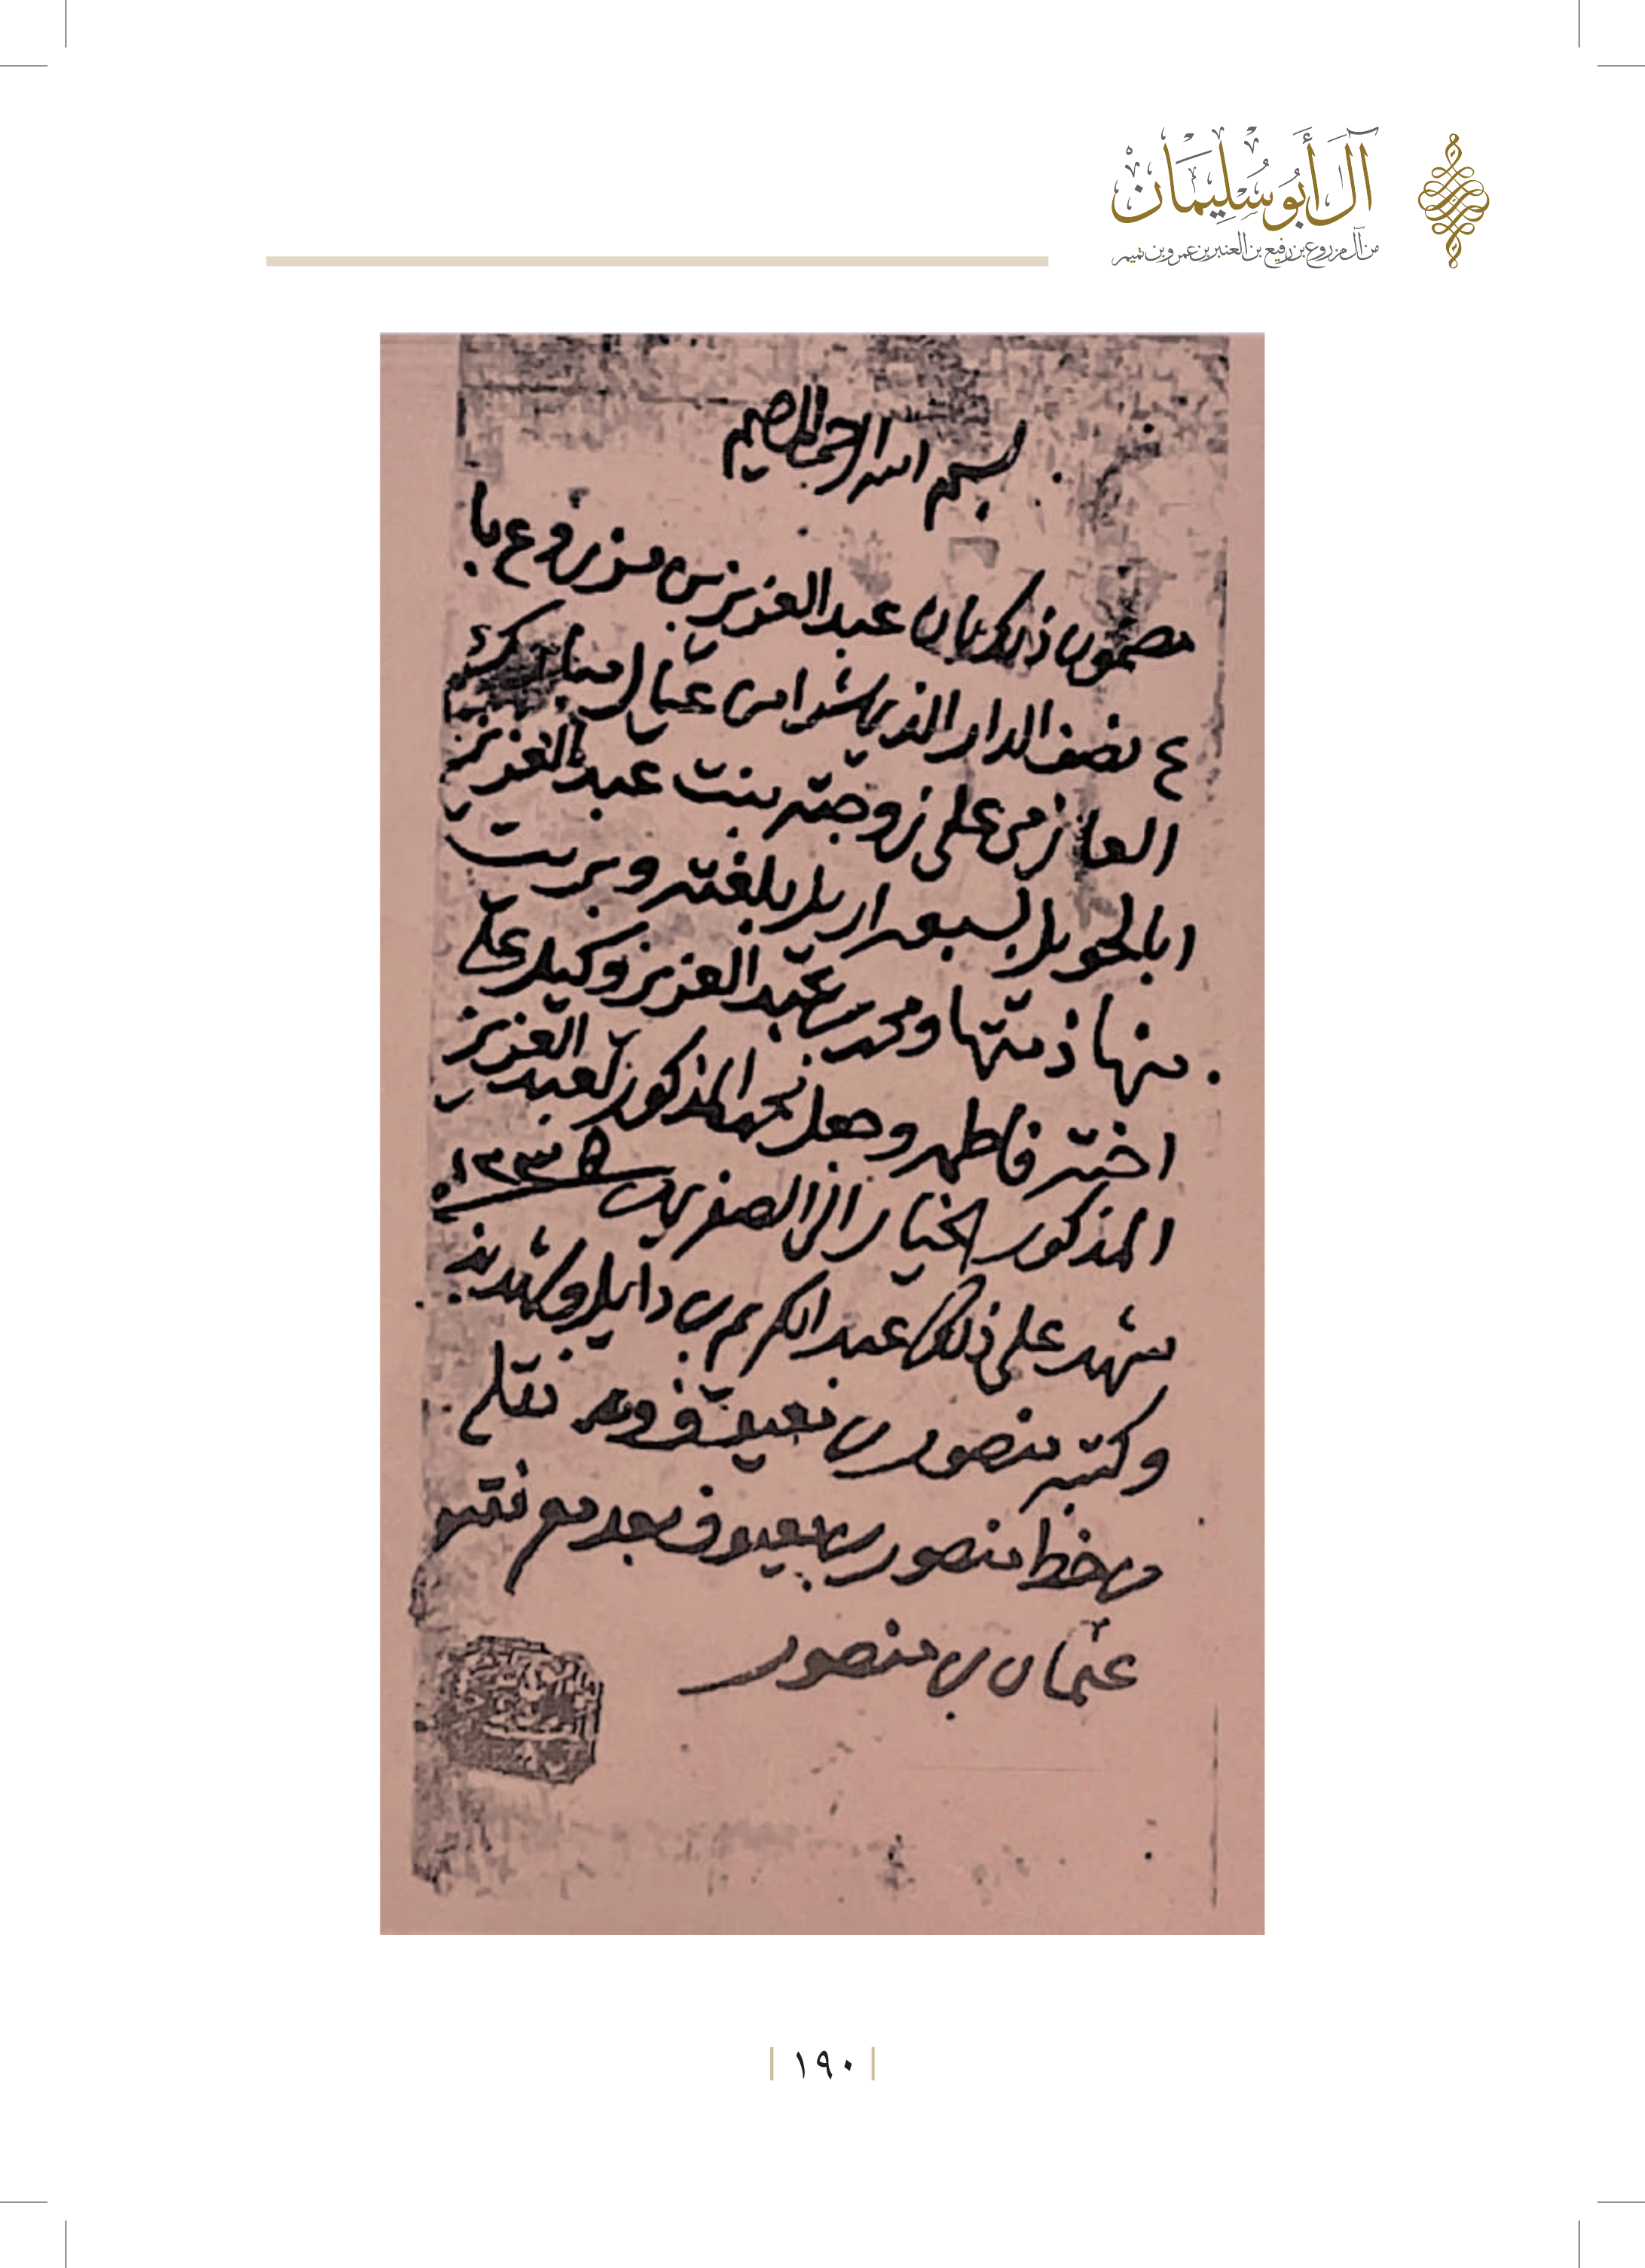 آل أَبُو سُلِيْمَان
من آل مزروع بن رفيع بن العنبر بن عمرو بن تميم
بسم الله الرحمن الرحيم
مضمون ذلك بان عبد العزيز بن مزروع با
ع نصف الدار الذي شرا من عيال مبارك
العازمي على زوجته بنت عبد العزيز
ابالحويل بسبعه اريل بلغته وبرت
منها ذمتها ومحمد بن عبد العزيز وكيل على
اخته فاطمه وجعل المذكور لعبد العزيز
المذكور الخيار الى الصفر ١٢٣٥
شهد على ذلك عبد الكريم بن دايل وشهد به
وكتبه منصور بن نقله
من خط منصور بن بعد معرفته
عثمان بن منصور
١٩٠